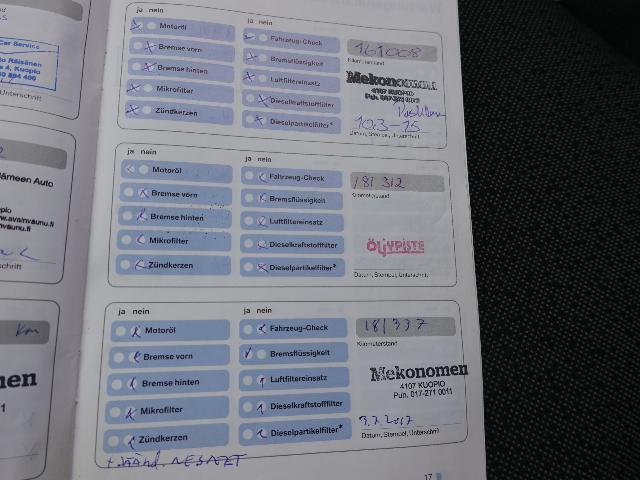 Car Service
Kuopio
Unterschrift
Hämeen Auto
www.avainvaunu.fi
Km
ja nein
Motoröl
Bremse vorn
Bremse hinten
Mikrofilter
Zündkerzen
ja nein
Fahrzeug-Check
Bremsflüssigkeit
Luftfiltereinsatz
Dieselkraftstofffilter
Dieselpartikelfilter*
161008
Kilometerstand
Mekonomen
4107 KUOPIO
Puh. 017-271 0011
10.3-15
Datum, Stempel, Unterschrift
ja nein
Motoröl
Bremse vorn
Bremse hinten
Mikrofilter
Zündkerzen
ja nein
Fahrzeug-Check
Bremsflüssigkeit
Luftfiltereinsatz
Dieselkraftstofffilter
Dieselpartikelfilter*
181 312
Kilometerstand
ÖLJYPISTE
Datum, Stempel, Unterschrift
ja nein
Motoröl
Bremse vorn
Bremse hinten
Mikrofilter
Zündkerzen
ja nein
Fahrzeug-Check
Bremsflüssigkeit
Luftfiltereinsatz
Dieselkraftstofffilter
Dieselpartikelfilter*
181337
Kilometerstand
Mekonomen
4107 KUOPIO
Puh. 017-271 0011
3.7.2017
Datum, Stempel, Unterschrift
+ JÄÄHD. NESTET
17